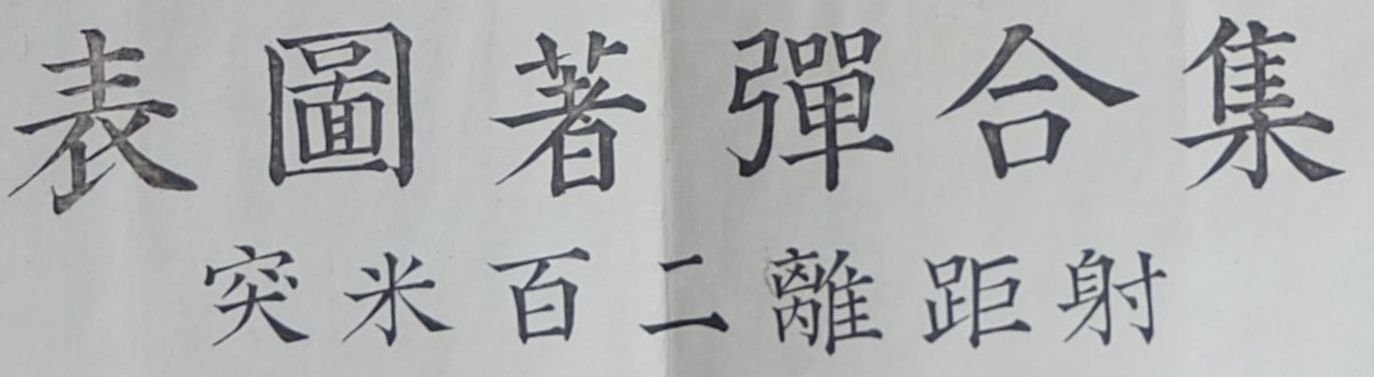 集合彈著圖表
射距離二百米突